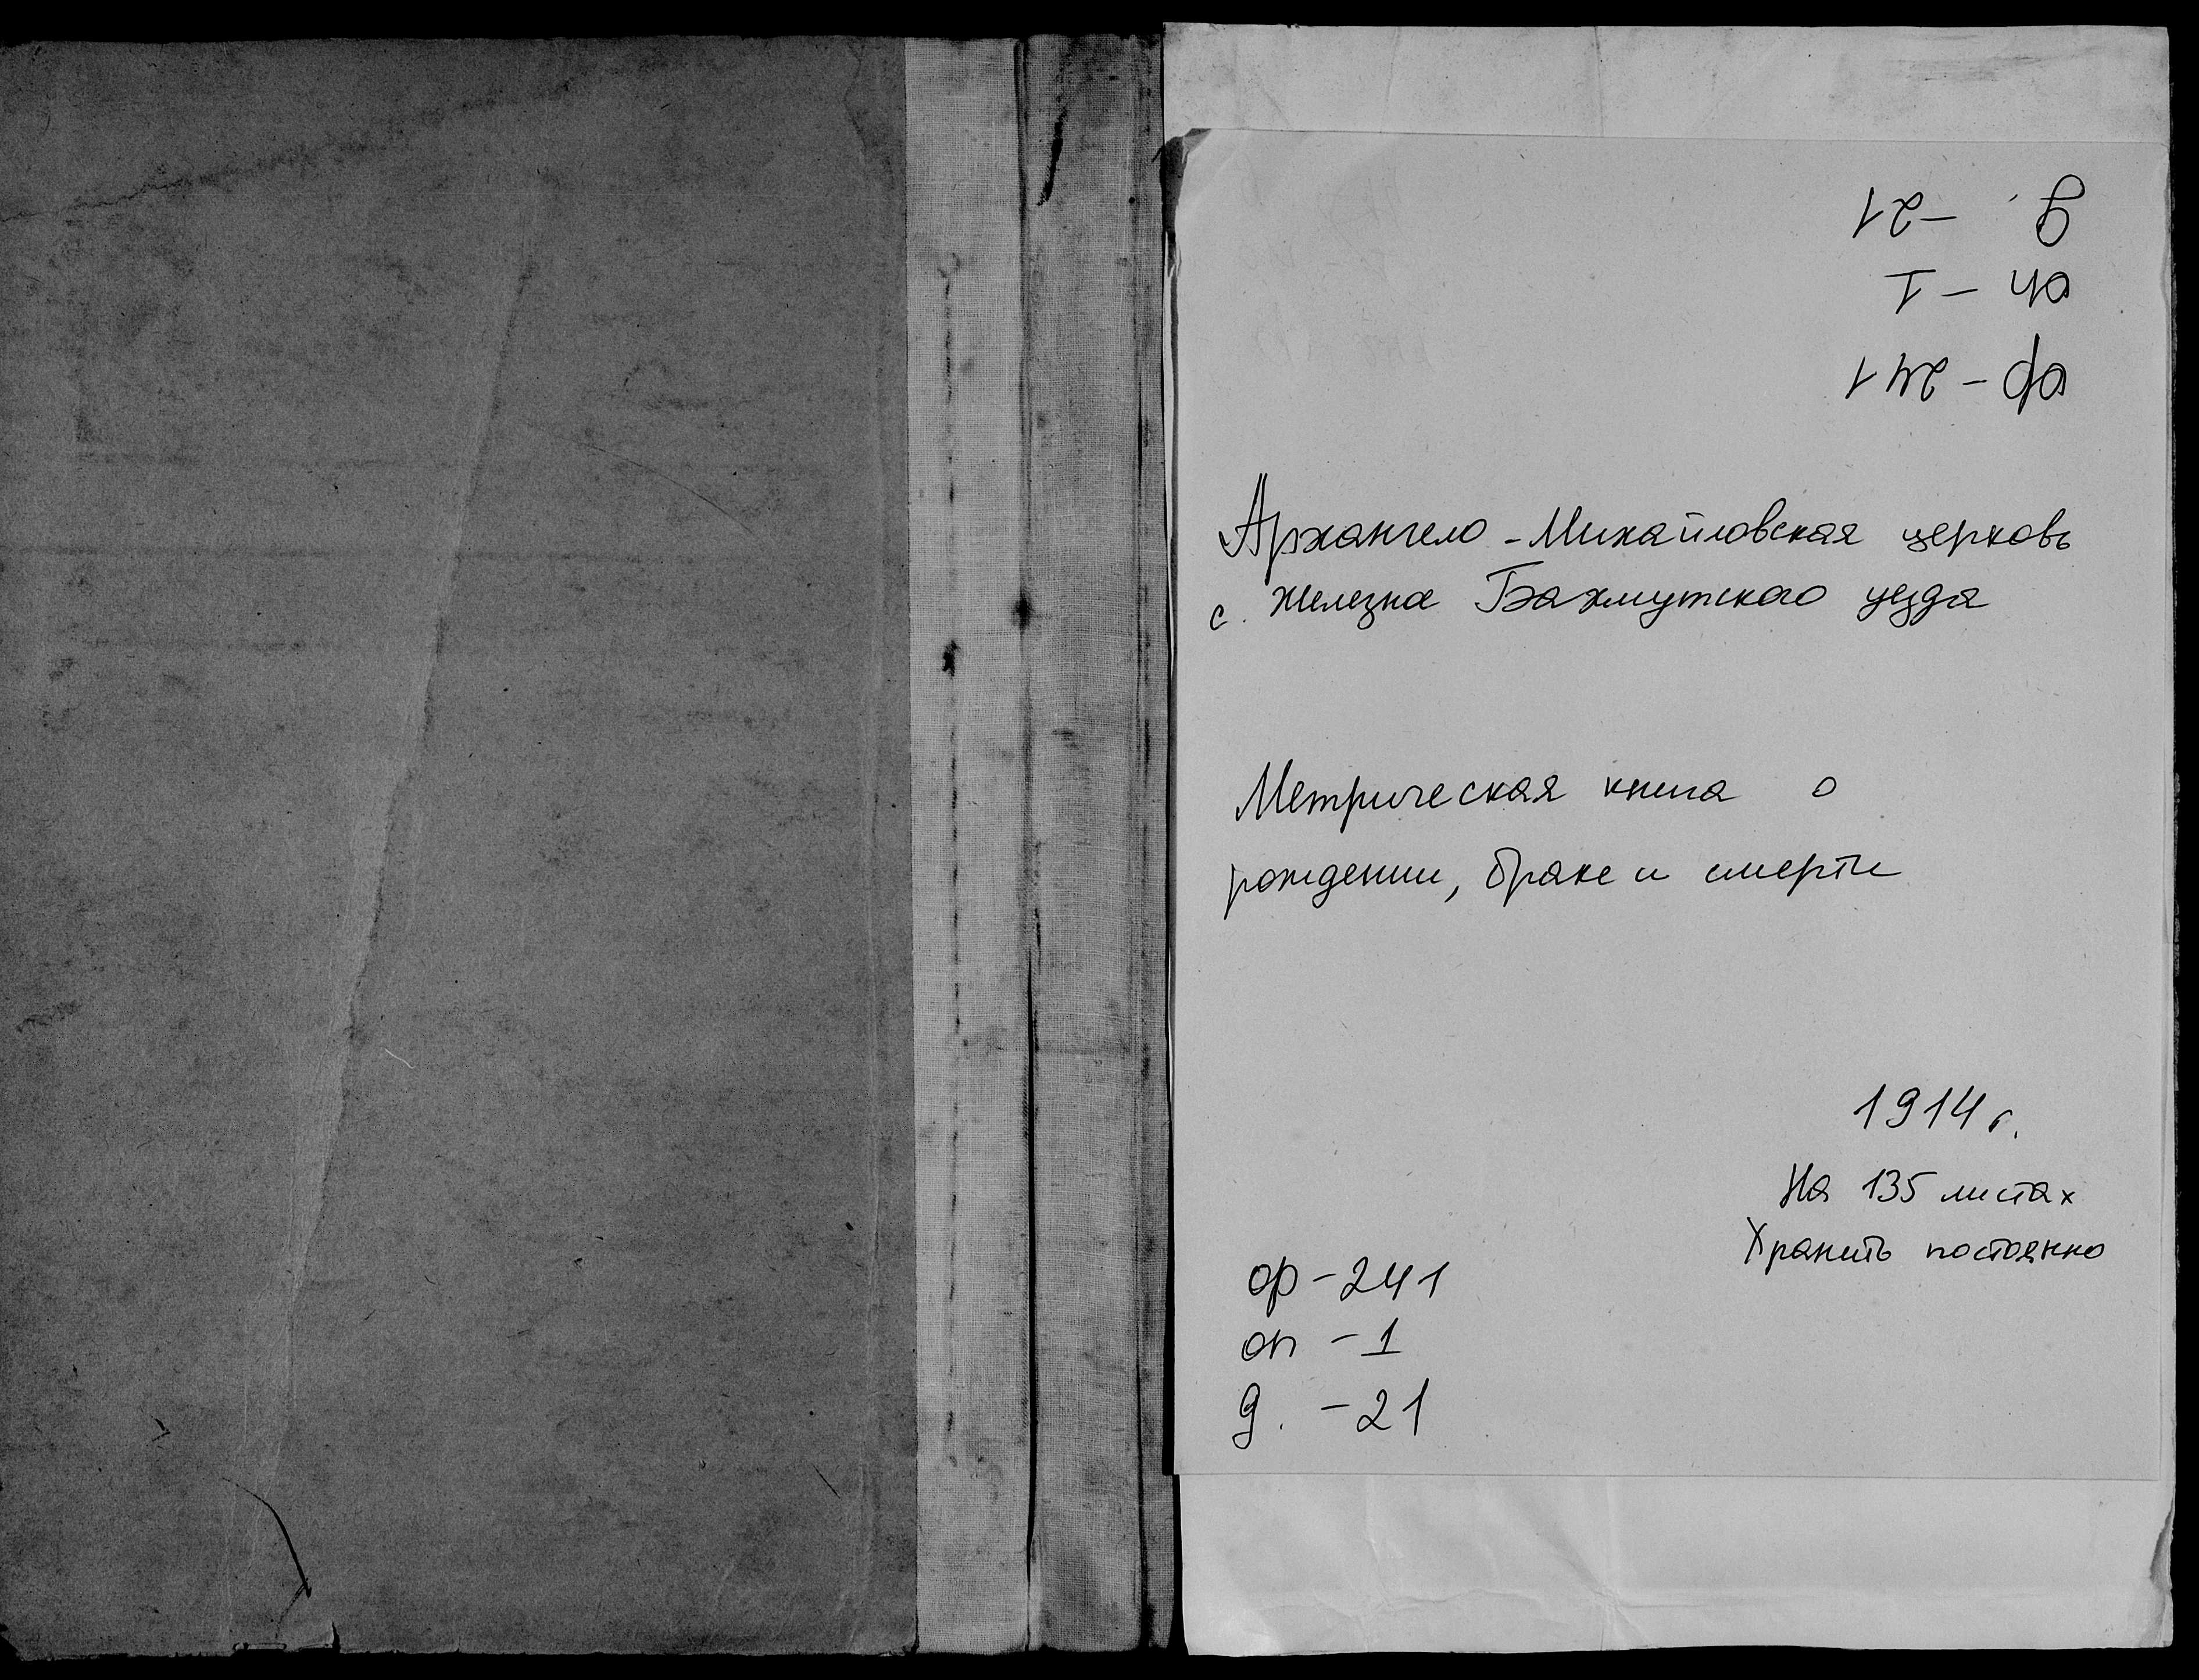 д. - 21
оп - 1
ф - 241
Архангело - Михайловская церковь
с. Железна Бахмутского уезда
Метрическая книга о
рождении, браке и смерти
1914 г.
На 135 листах
Хранить постоянно
ф - 241
оп - 1
д. - 21